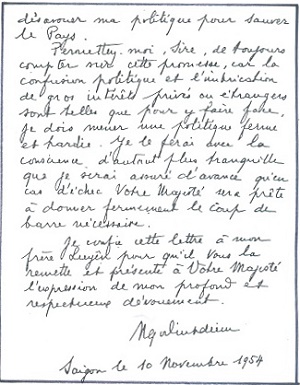 désavouer ma politique pour sauver
le Pays.
Permettez-moi, Sire, de toujours
compter sur cette promesse, car la
confusion politique et l'imbrication
de gros intérêts privés ou étrangers
sont telles que pour y faire face,
je dois mener une politique ferme
et hardie. Je le ferai avec la
conscience d'autant plus tranquille
que je serai assuré d'avance qu'en
cas d'échec Votre Majesté sera prête
à donner fermement le coup de
barre nécessaire.
Je confie cette lettre à mon
frère Luyện pour qu'il Vous la
remette et présente à Votre Majesté
l'expression de mon profond et
respectueux dévouement.
Ngodinhdiem
Saigon le 10 Novembre 1954